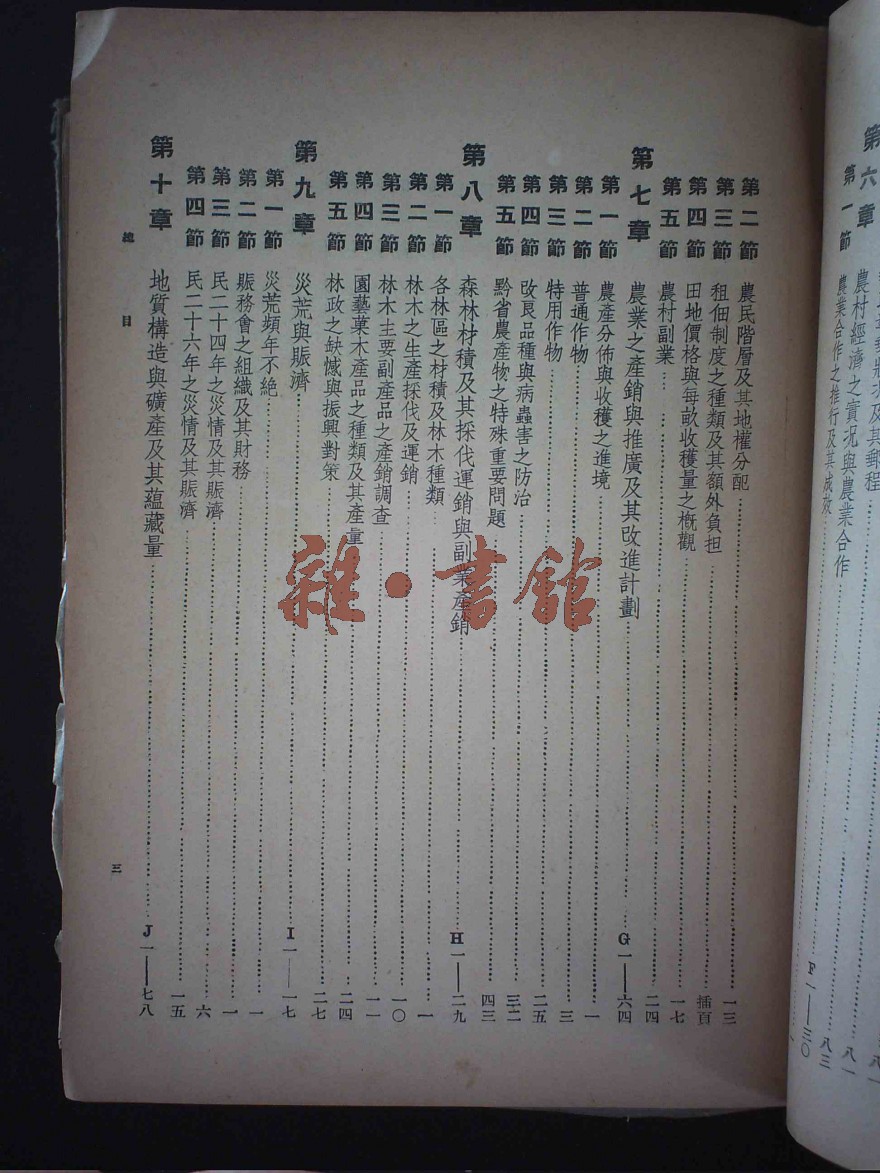 第六章　農村經濟之實况與農業合作……F一——三〇
第一節　農業合作之推行及其成效……
第二節　農民階層及其地權分配……一三
第三節　租佃制度之種類及其額外負担……插頁
第四節　田地價格與每畝收穫量之概觀……一七
第五節　農村副業……二四
第七章　農業之產銷與推廣及其改進計劃……G一——六四
第一節　農產分佈與收穫之進境……一
第二節　普通作物……三
第三節　特用作物……二五
第四節　改良品種與病蟲害之防治……三二
第五節　黔省農產物之特殊重要問題……四三
第八章　森林材積及其採伐運銷與副業產銷……H一——二九
第一節　各林區之材積及林木種類……一
第二節　林木之生產採伐及運銷……一〇
第三節　林木主要副產品之產銷調查……一一
第四節　園藝菓木產品之種類及其產量……二四
第五節　林政之缺憾與振興對策……二七
第九章　災荒與賑濟……I一——一七
第一節　災荒頻年不絕……一
第二節　賑務會之組織及其財務……一
第三節　民二十四年之災情及其賑濟……六
第四節　民二十六年之災情及其賑濟……一五
第十章　地質構造與礦產及其蘊藏量……J一——七八
總目
三
雜·書館